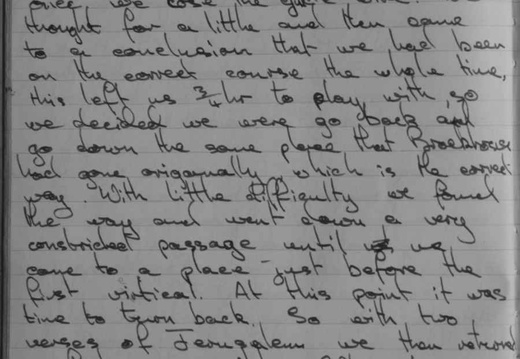 thought for a little and then came
to a conclusion that we had been
on the correct course the whole time,
this left us 3/4 hr to play with, so
we decided we were go back and
go down the same place that Brookhouse
had gone origonally which is the correct
way. With little difficulty we found
the way and went down a very
constricted passage until we
came to a place just before the
first virtical. At this point it was
time to turn back. So with two
verses of Jerusalem we then